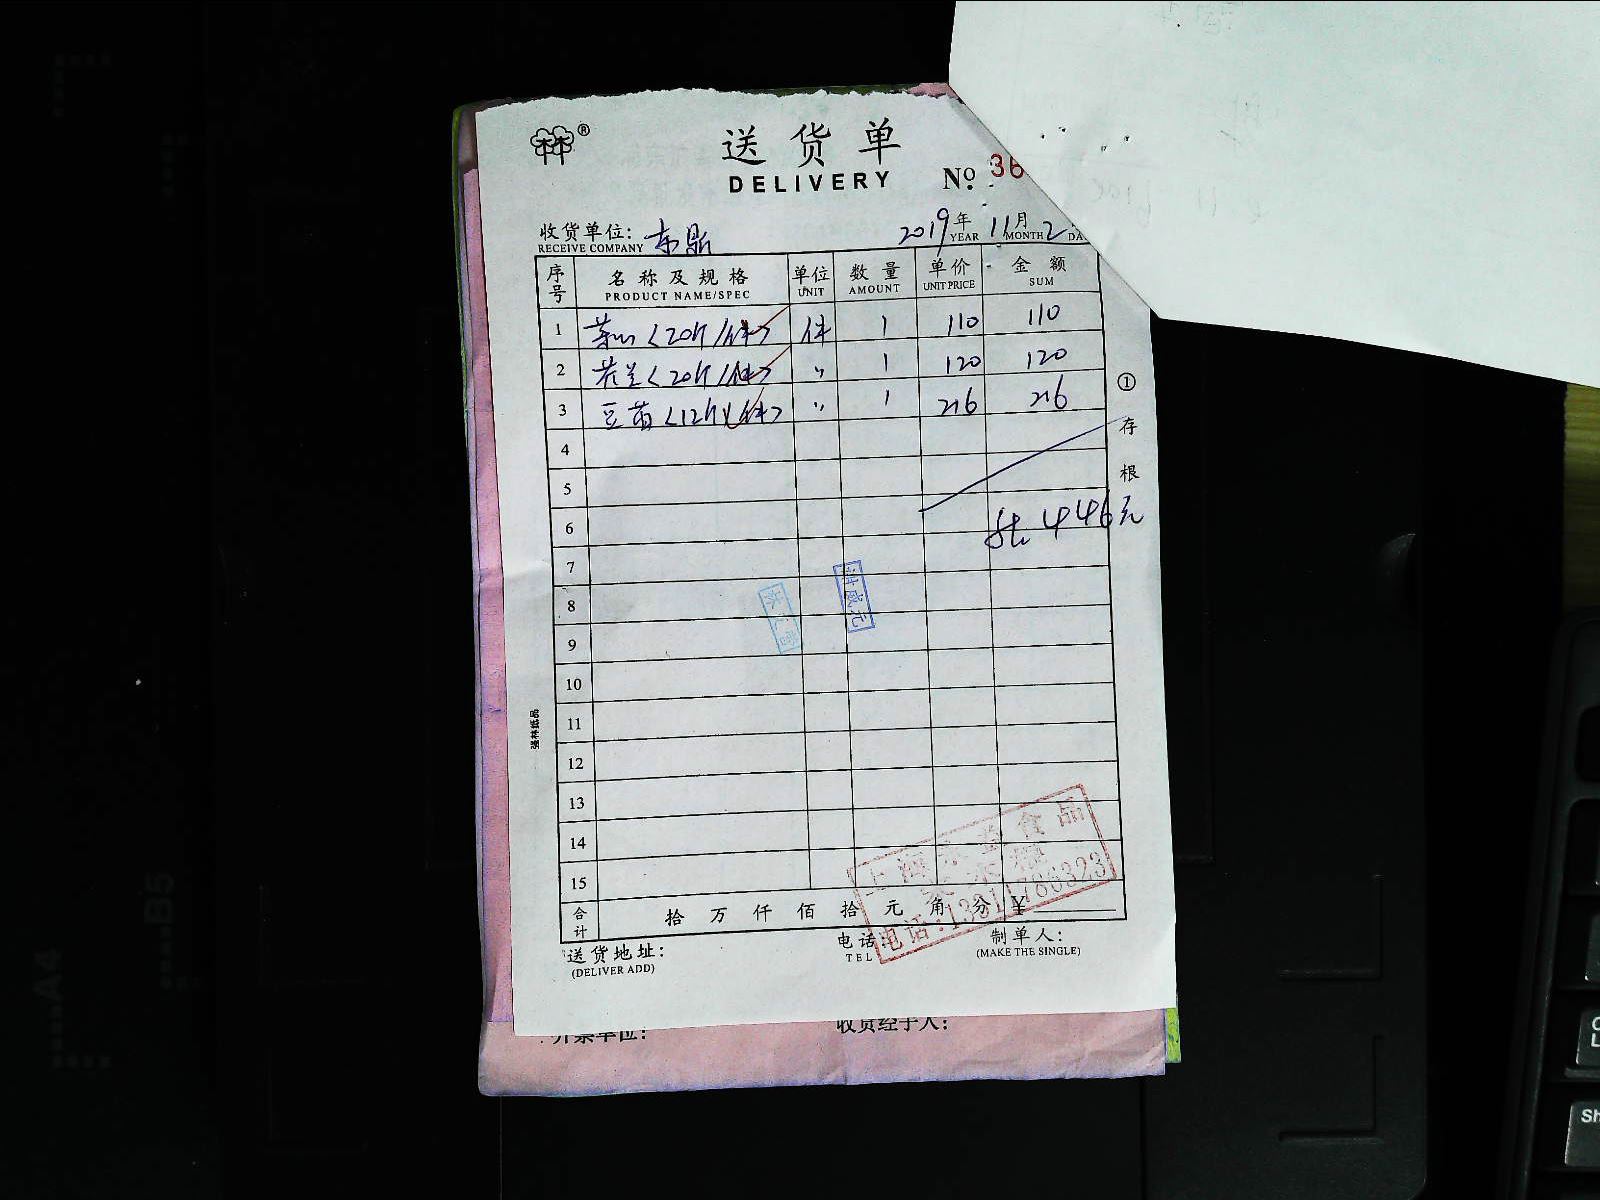 ®
送货单
DELIVERY
No. 36
收货单位: 东鼎 2019年 11月 2
RECEIVE COMPANY YEAR MONTH DA
序号 名称及规格 单位 数量 单价 金额
PRODUCT NAME/SPEC UNIT AMOUNT UNIT PRICE SUM
1 <20斤/件> 件 1 110 110
2 <20斤/件> 〃 1 120 120
3 豆苗<12斤/件> 〃 1 216 216
4
5
6 446元
7
8
9
10
11
12
13
14
15
①存根
强林纸品
上海 益食品
电话:
合计 拾 万 仟 佰 拾 元 角 分 ¥
送货地址: 电话: 制单人:
(DELIVER ADD) TEL (MAKE THE SINGLE)
开票单位: 收货经手人:
A4
B5
Sh